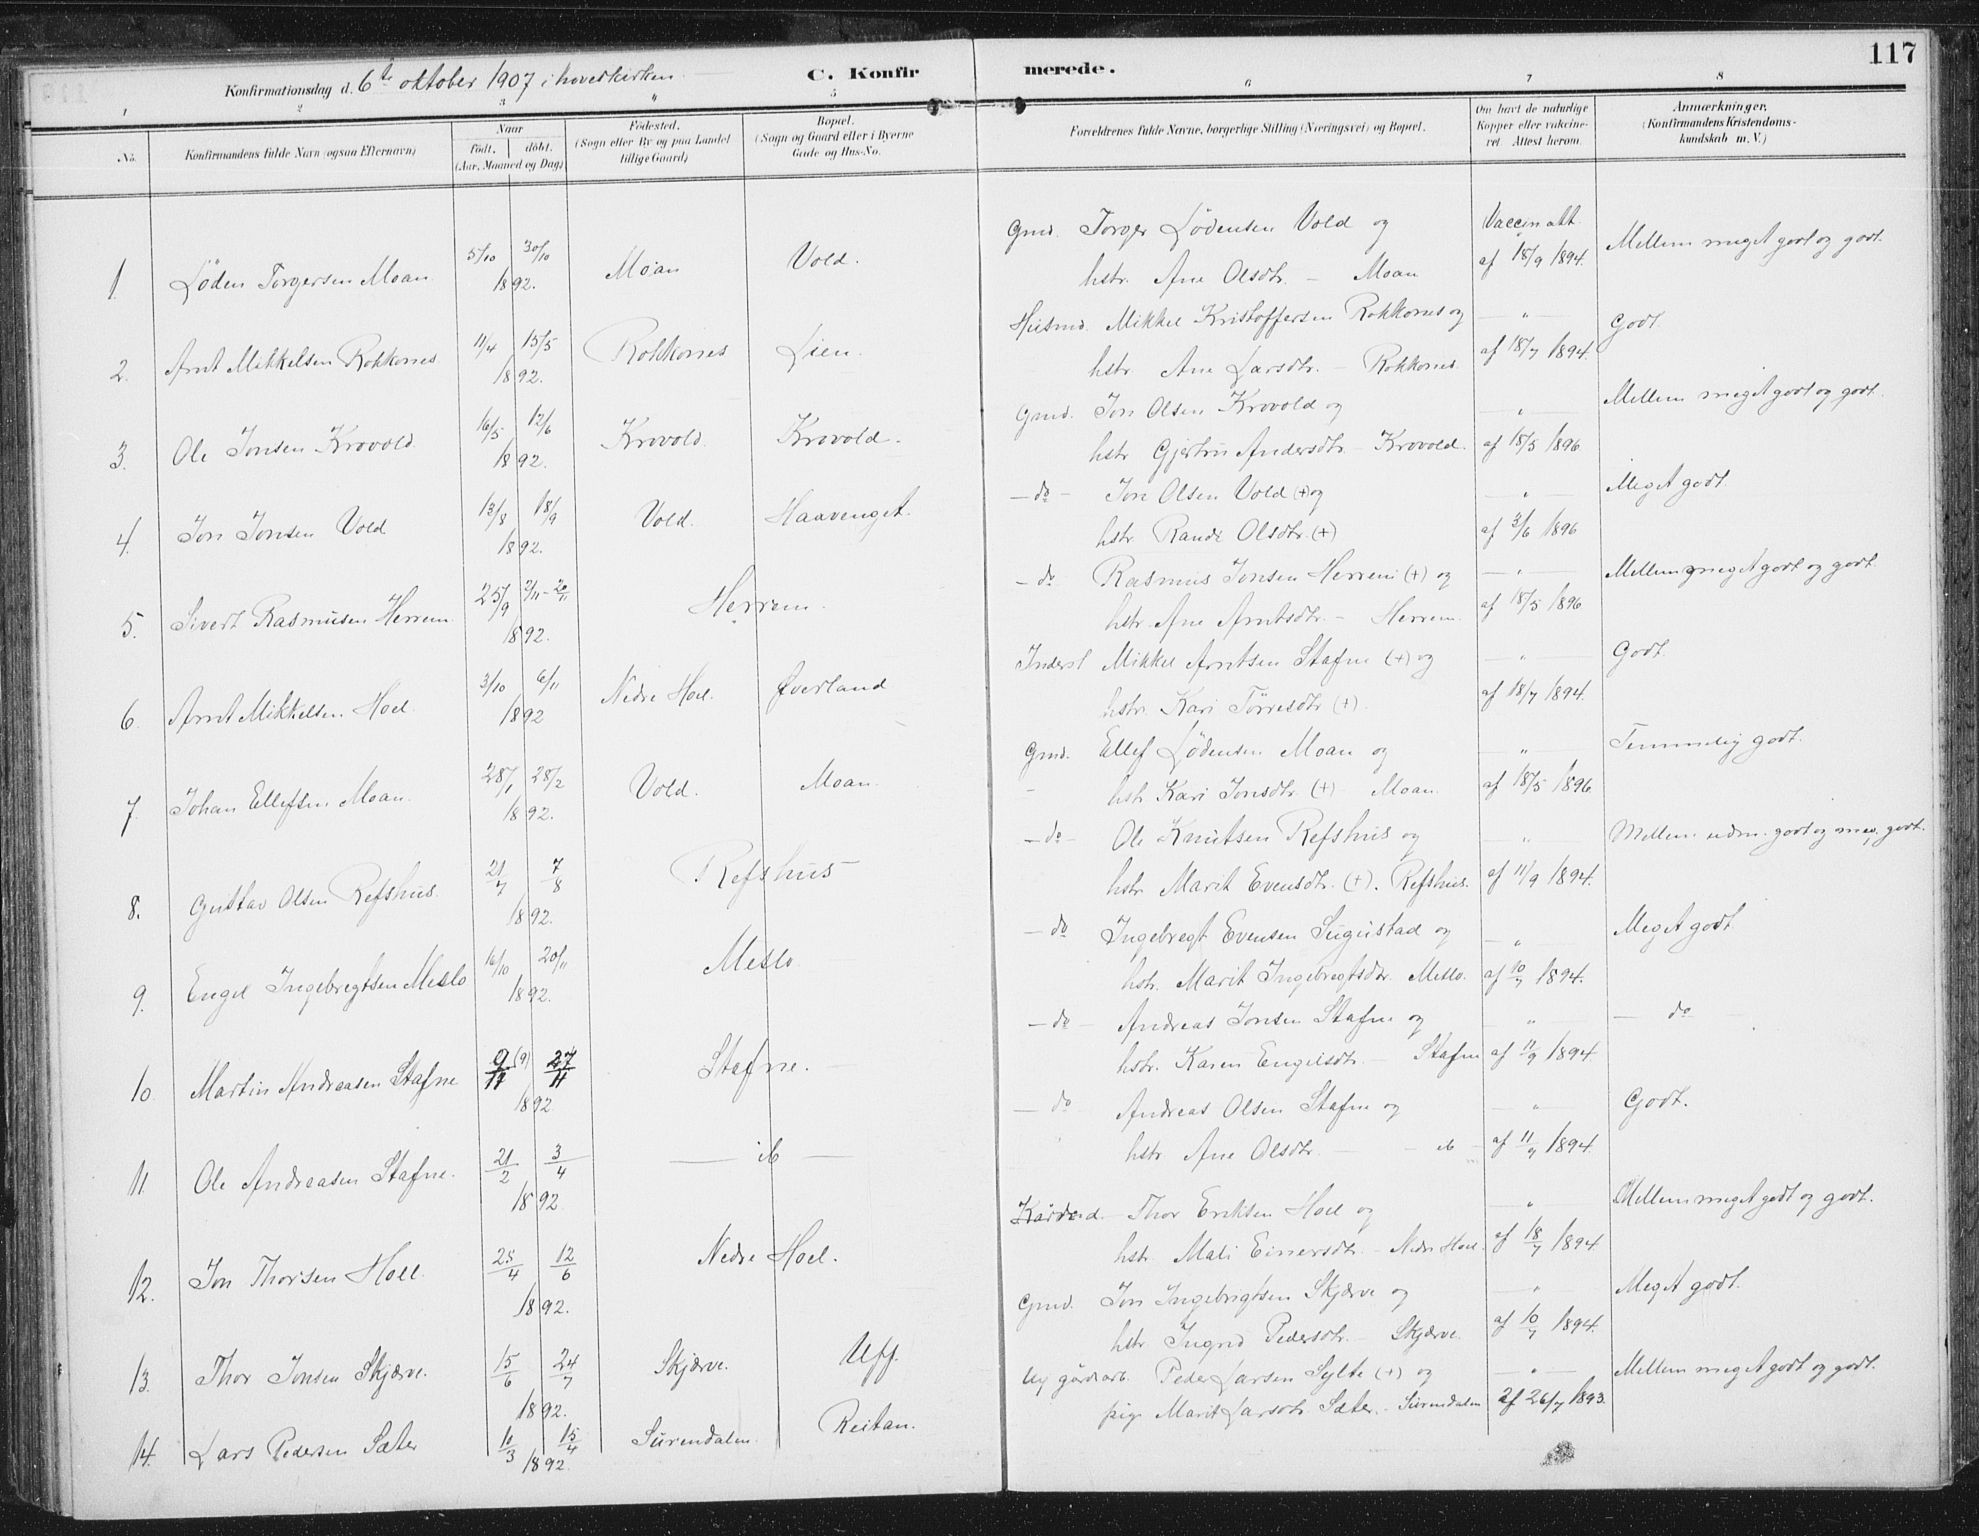 117
Konfirmationsdag d. 6te oktober 1907 i hovedkirken. C. Konfirmerede.
1 2 3 4 5 6 7 8
No. Konfirmandens fulde Navn (ogsaa Efternavn) Naar født, døbt. (Aar, Maaned og Dag) Fødested. (Sogn eller By og paa Landet tillige Gaard) Bopæl. (Sogn og Gaard eller i Byerne Gade og Hus-No. Forældrenes fulde Navne, borgerlige Stilling (Næringsvei) og Bopæl. Om havt de naturlige Kopper eller vaccineret. Attest herom. Anmærkninger. (Konfirmandens Kristendomskundskab m. V.)
Gmd. Torger Lødensen Vold og Vaccin att. Mellem meget godt og godt.
1. Løden Torgersen Moan 5/10 30/10 1892. Moan Vold. hstr. Ane Olsdtr. - Moan af 18/9 1894.
Husmd. Mikkel Kristoffersen Rokkones og — " — Godt.
2. Arnt Mikkelsen Rokkones 11/4 15/5 1892. Rokkones Lien. hstr. Ane Larsdtr. - Rokkones. af 18/7 1894.
Gmd. Jon Olsen Krovold og — " — Mellem meget godt og godt.
3. Ole Jonsen Krovold. 16/5 12/6 1892. Krovold. Krovold. hstr. Gjertru Andersdtr. - Krovold. af 18/5 1896.
— do — Jon Olsen Vold (+) og — " — Meget godt.
4. Jon Jonsen Vold 13/8 18/9 1892. Vold. Haavenget. hstr. Randi Olsdtr. (+) af 3/6 1896
— do Rasmus Jonsen Herrem (+) og — " — Mellem meget godt og godt.
5. Sivert Rasmusen Herrem. 25/9 2/11 - 20/11 1892. Herrem. hstr. Ane Arntsdtr. - Herrem. af 18/5 1896
Inderst Mikkel Arntsen Stafne (+) og — " — Godt.
6. Arnt Mikkelsen Hoel. 3/10 6/11 1892 Nedre Hoel. Øverland hstr. Kari Tørresdtr (+). af 18/7 1894.
Gmd. Ellef Lødensen Moan og — " — Temmelig godt.
7. Johan Ellefsen Moan. 28/1 28/2 1892. Vold. Moan. hstr. Kari Jonsdtr. (+) - Moan. af 18/5 1896.
— do — Ole Knutsen Refshus og " Mellem udm. godt og meg. godt.
8. Gustav Olsen Refshus. 21/7 7/8 1892. Refshus hstr. Marit Evensdtr. (+). Refshus. af 11/9 1894.
— do Ingebregt Evensen Sugustad og — " — Meget godt.
9. Engel Ingebregtsen Meslo 16/10 20/11 1892. Meslo hstr. Marit Ingebregtsdtr. Meslo. af 10/7 1894.
— do — Andreas Jonsen Stafne og — " — — do —
10. Martin Andreasen Stafne 9/11 (9) 27/11 1892 Stafne. hstr. Karen Engelsdtr. - Stafne af 11/9 1894.
— do Andreas Olsen Stafne og — " — Godt.
11. Ole Andreasen Stafne. 21/2 3/4 1892 — ib — hstr. Ane Olsdtr. - - ib - af 11/9 1894.
Thor Eriksen Hoel og — " — Mellem meget godt og godt.
12. Jon Thorsen Hoel. 25/4 12/6 1892. Nedre Hoel. hstr. Mali Einersdtr. - Nedre Hoel. af 18/7 1894.
Gmd. Jon Ingebrigtsen Skjærve og " Meget godt.
13. Thor Jonsen Skjærve. 15/6 24/7 1892. Skjærve. Uff. hstr. Ingrid Pedersdtr. - Skjærve. af 10/7 1894.
Ug. gårdarb. Peder Larsen Sylte (+) og — " — Mellem meget godt og godt.
14. Lars Pedersen Sæter 10/3 15/4 1892. Surendalen Reitan. pige Marit Larsdtr. Sæter. - Surendalen af 26/7 1893.